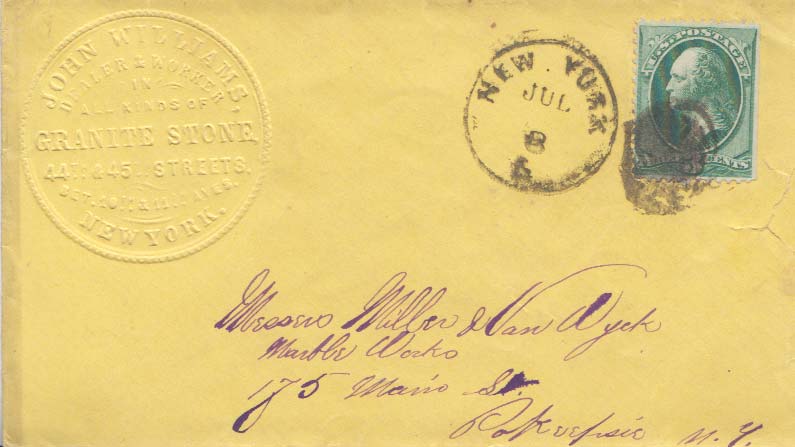 JOHN WILLIAMS,
DEALER & WORKER
IN
ALL KINDS OF
GRANITE STONE,
44TH & 45TH STREETS.
BET. 10TH & 11TH AVES.
NEW YORK.
NEW YORK
JUL
8
U.S. POSTAGE
THREE CENTS
Messers Miller & Van Wyck
Marble Works
175 Main St.
Pokeepsie N.Y.